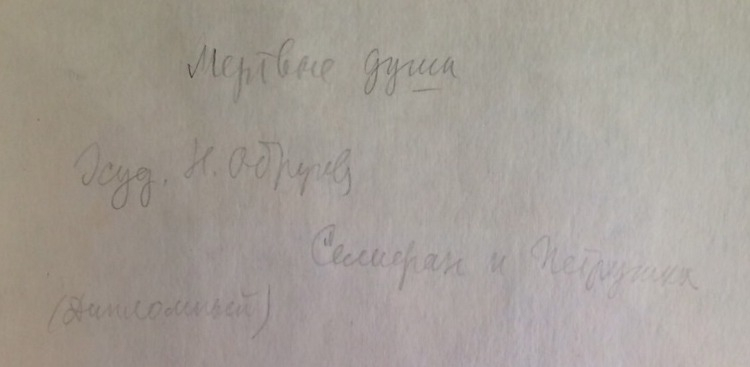 Мертвые души
Худ. Н. Обручев
Селифан и Петрушка
(Дипломный)